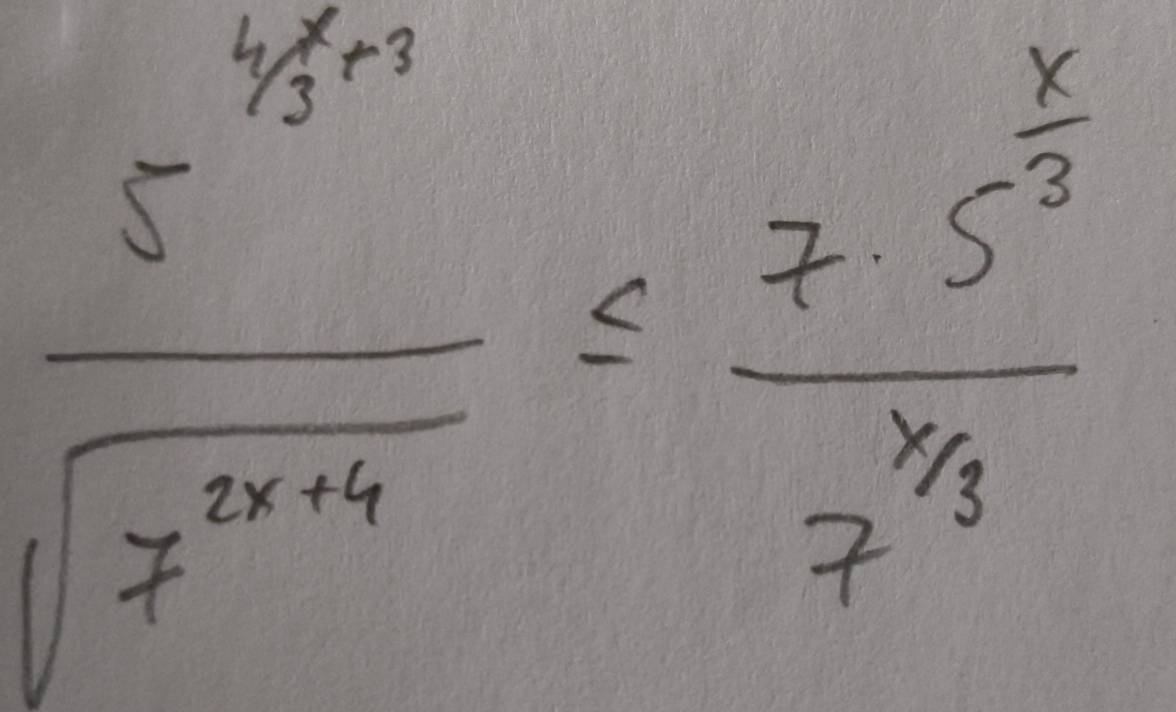 5^{4/3 x + 3} / √(7^{2x+4}) ≤ 7 · 5^{x/3} / 7^{x/3}